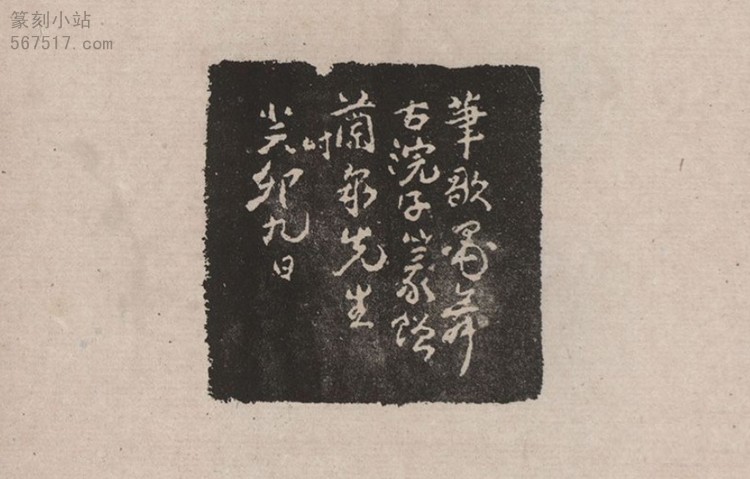 篆刻小站
567517.com
筆歌墨舞
古浣子篆贈
蘭泉先生
时
癸卯九日